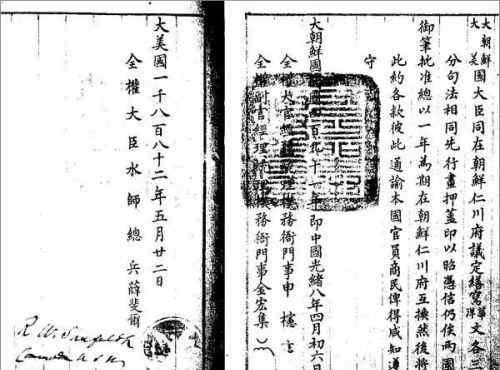 大朝鮮
大美國大臣同在朝鮮仁川府議定繕寫華洋文各三
分句法相同先行畫押蓋印以昭憑信仍俟兩國
御筆批准總以一年為期在朝鮮仁川府互換然後將
此約各款彼此通諭本國官員商民俾得咸知遵
守
大朝鮮國開國四百九十一年即中國光緒八年四月初六日
全權大官經理統理機務衙門事申櫶
全權副官經理統理機務衙門事金宏集
大美國一千八百八十二年五月二十二日
全權大臣水師總兵薛斐爾
R. W. Shufeldt
Commodore U.S.N.